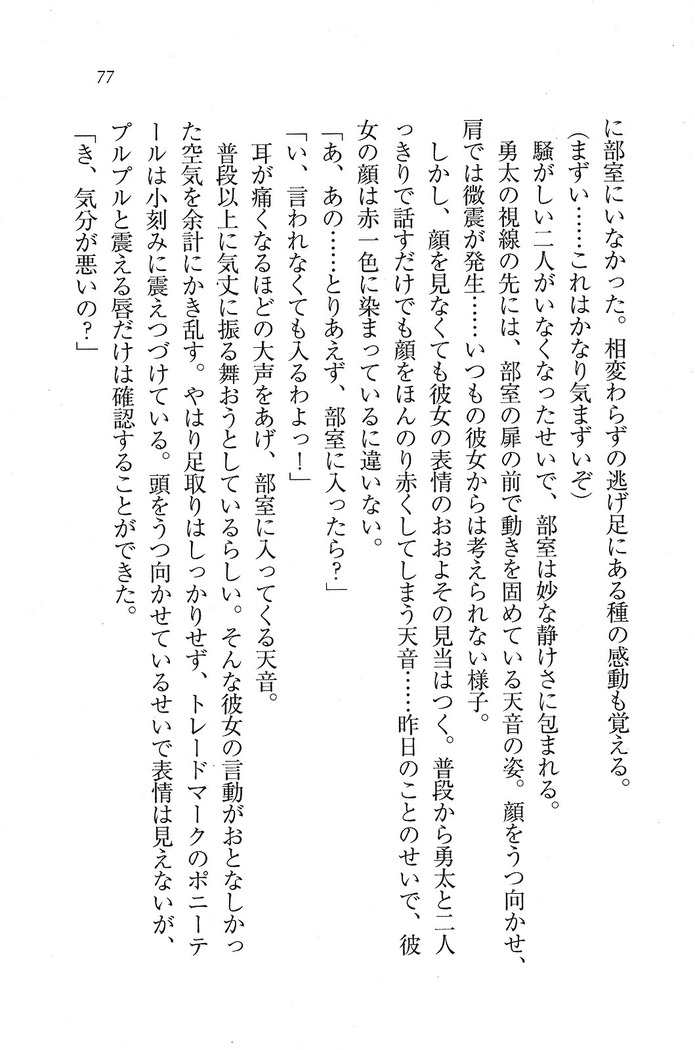 77
に部室にいなかった。相変わらずの逃げ足にある種の感動も覚える。
(まずい……これはかなり気まずいぞ)
騒がしい二人がいなくなったせいで、部室は妙な静けさに包まれる。
勇太の視線の先には、部室の扉の前で動きを固めている天音の姿。顔をうつ向かせ、
肩では微震が発生……いつもの彼女からは考えられない様子。
しかし、顔を見なくても彼女の表情のおおよその見当はつく。普段から勇太と二人
っきりで話すだけでも顔をほんのり赤くしてしまう天音……昨日のことのせいで、彼
女の顔は赤一色に染まっているに違いない。
「あ、あの……とりあえず、部室に入ったら?」
「い、言われなくても入るわよっ!」
耳が痛くなるほどの大声をあげ、部室に入ってくる天音。
普段以上に気丈に振る舞おうとしているらしい。そんな彼女の言動がおとなしかっ
た空気を余計にかき乱す。やはり足取りはしっかりせず、トレードマークのポニーテ
ールは小刻みに震えつづけている。頭をうつ向かせているせいで表情は見えないが、
プルプルと震える唇だけは確認することができた。
「き、気分が悪いの?」